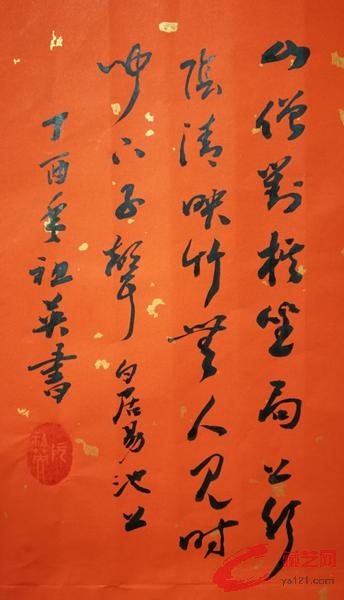 山僧對棋坐局上竹
陰清映竹無人見時
聞下子聲 白居易池上
丁酉年祖英書
ys121.com